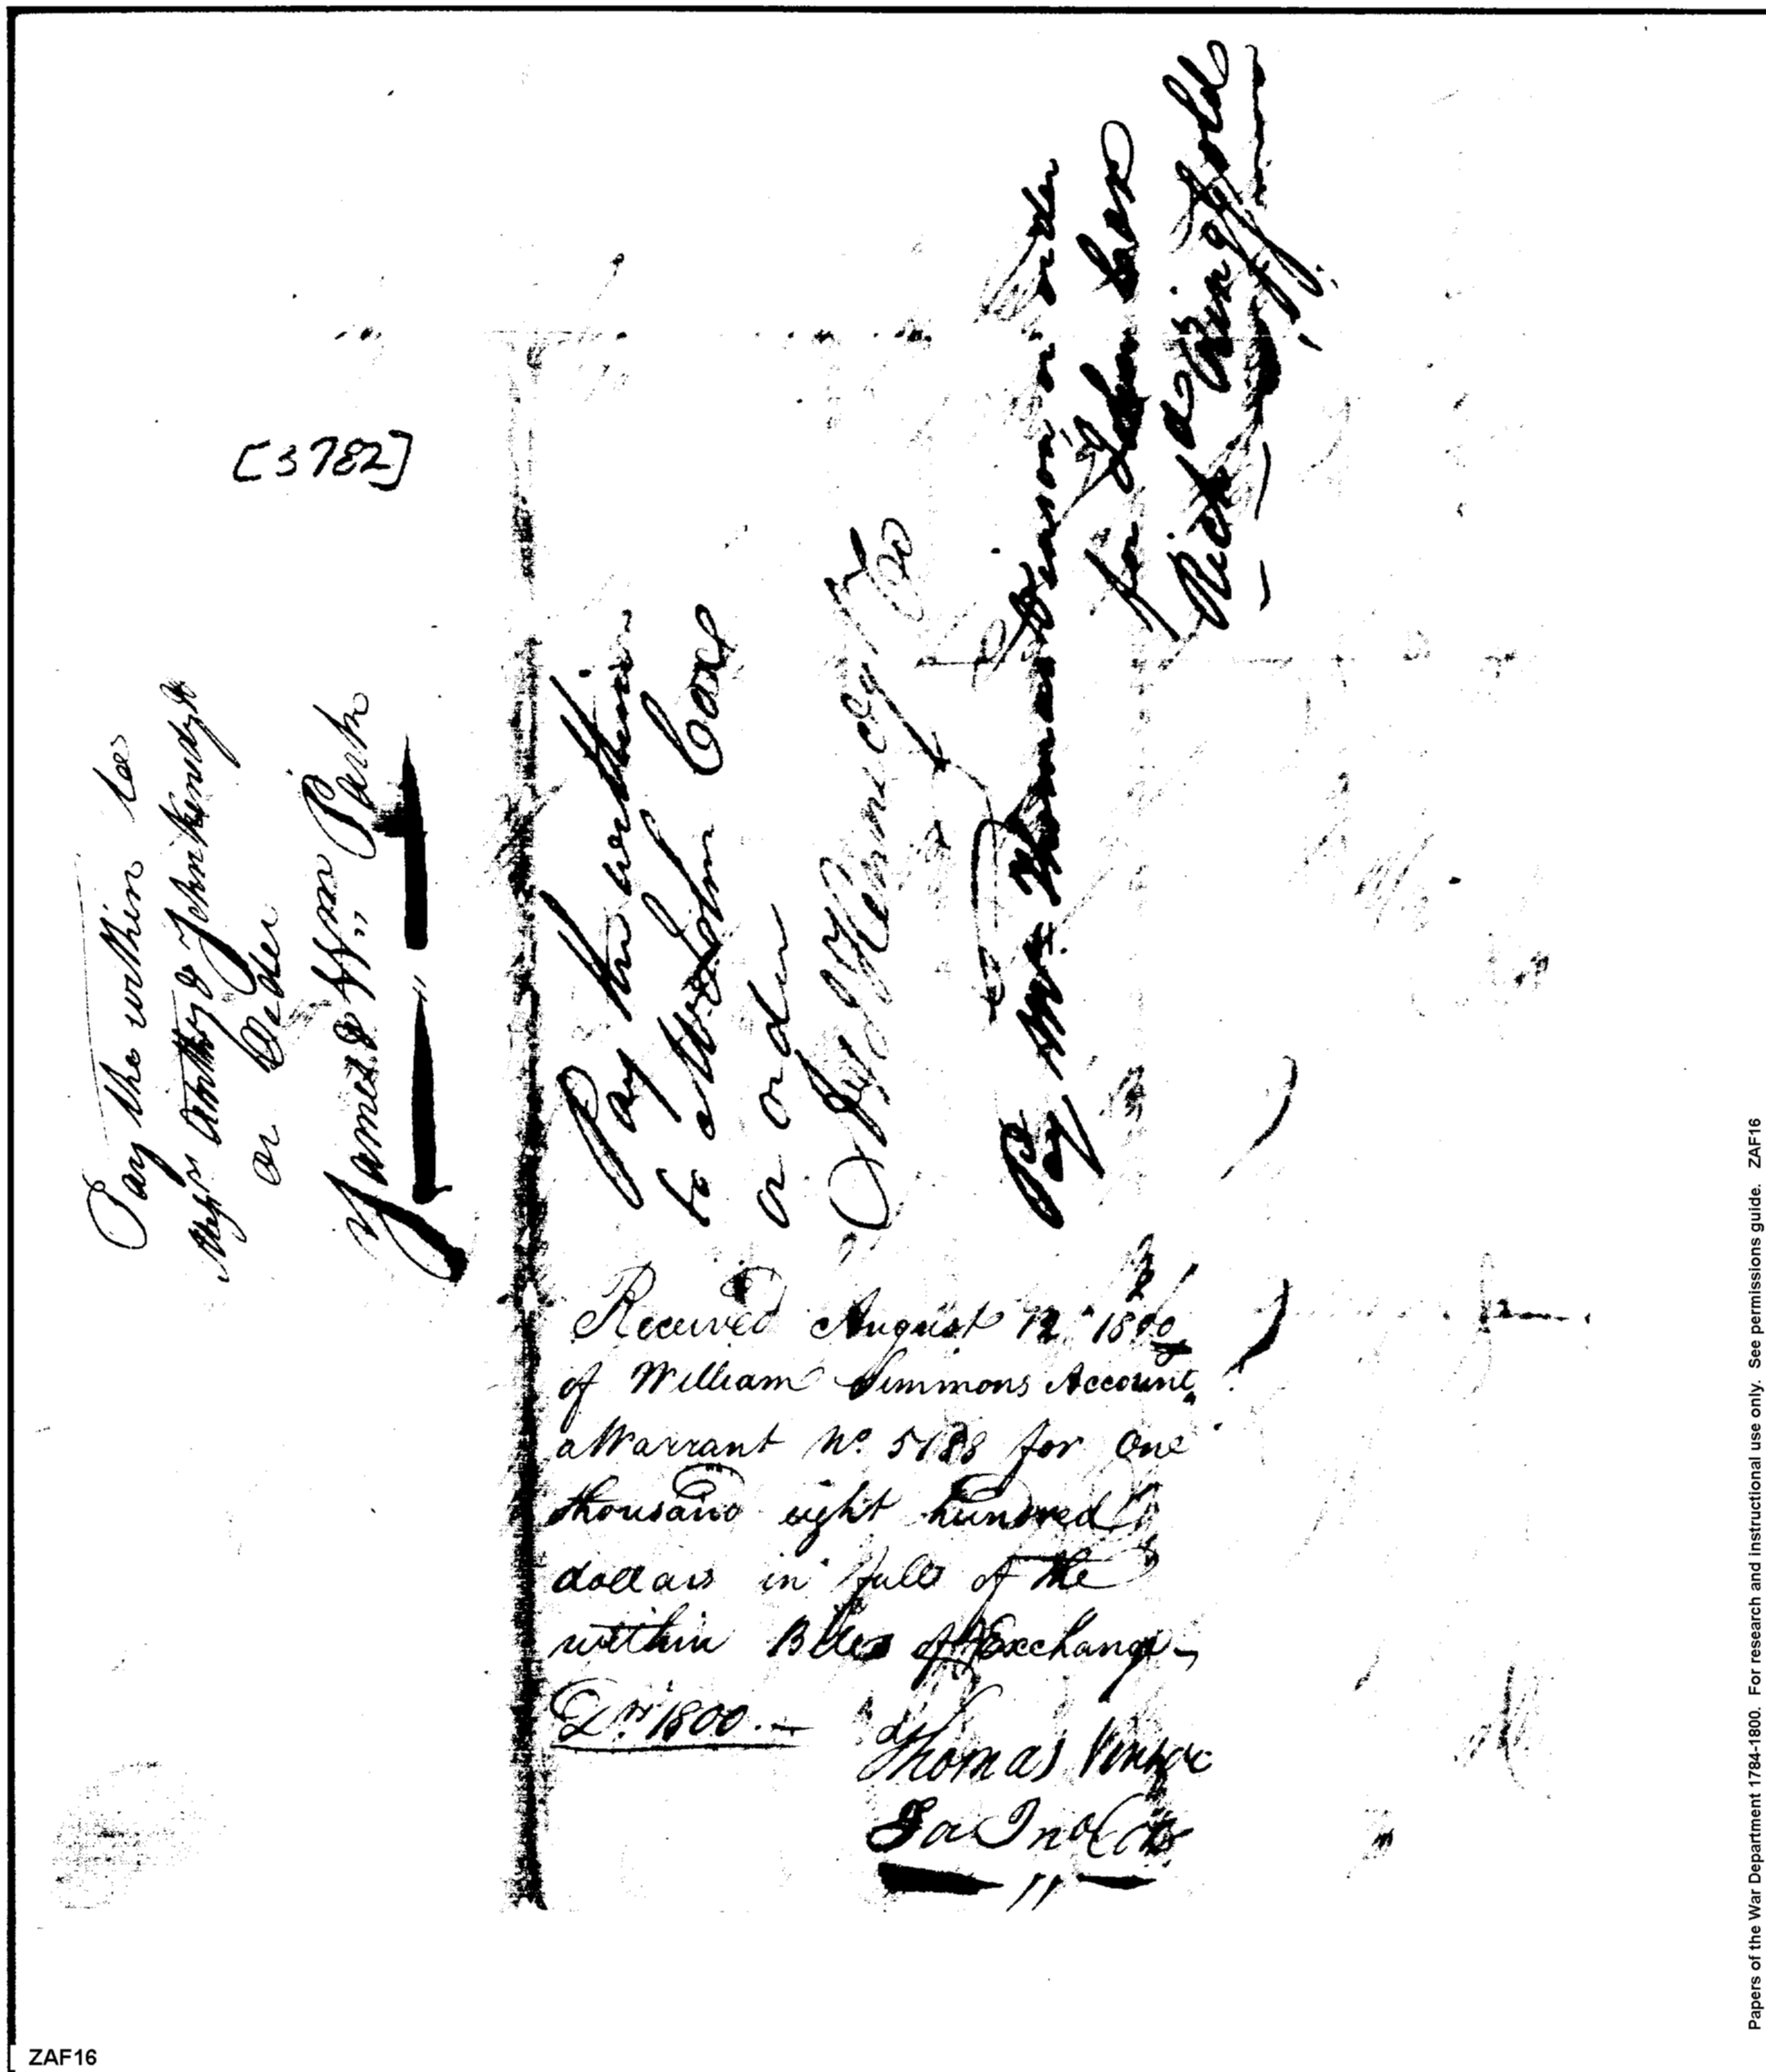 [3782]
Pay the within to
Messrs Anthony & John Kennedy &
or Order
James & Wm Park
Pay the within
to Mr John Coxe
or order
Kennedy & Co
Pay Mr Thomas Vinson or order
for John Cox
Richd Ringgold
Received August 12th 1800
of William Simmons Account.
a Warrant No. 5188 for One
thousand eight hundred
dollars in full of the
within Bill of Exchange
Drs 1800.—
Thomas Vinson
For Jno Cox
Papers of the War Department 1784-1800. For research and instructional use only. See permissions guide. ZAF16
ZAF16